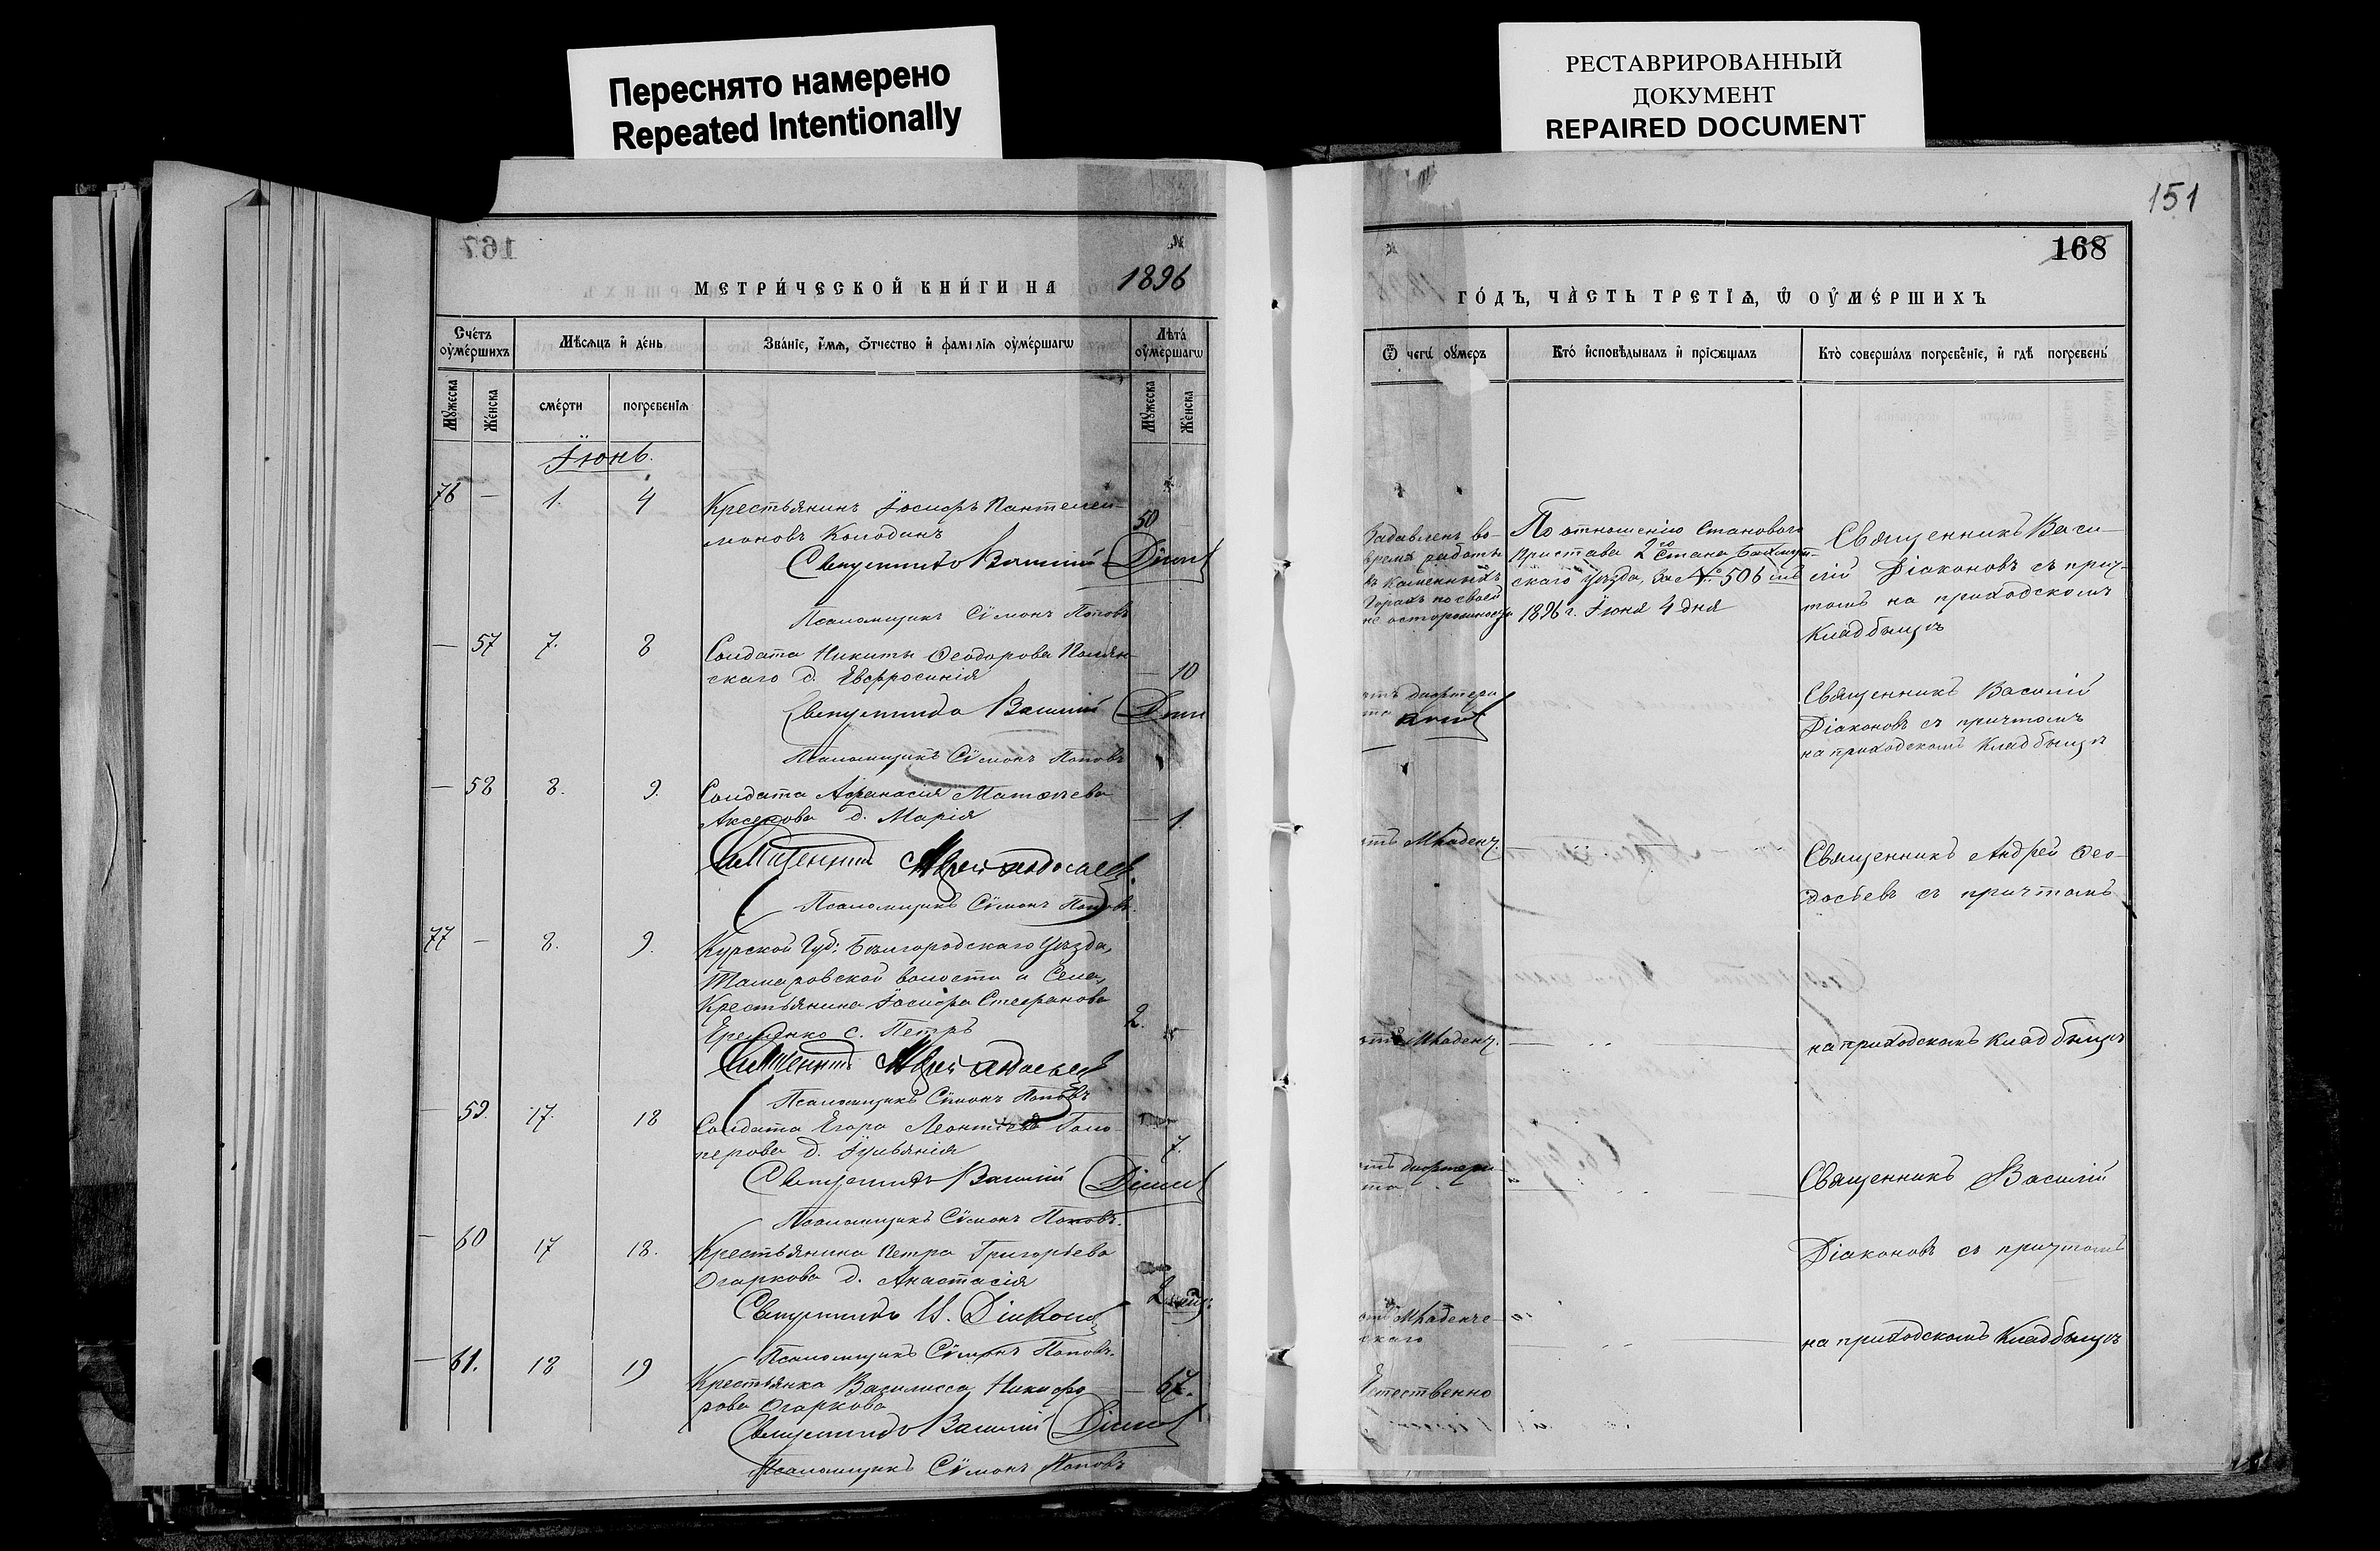 Переснято намерено
Repeated Intentionally
РЕСТАВРИРОВАННЫЙ
ДОКУМЕНТ
REPAIRED DOCUMENT
151
167
168
МЕТРИ́ЧЕСКОЙ КНИ́ГИ НА 1896
ГО́ДЪ, ЧА̀СТЬ ТРЕТІѦ, Ѡ҆ ОУ҆МЕ́РШИХЪ
Сче́тъ оу҆ме́ршихъ
Мѣ́сяцъ и҆ де́нь
Зва́ніе, и҆́мѧ, ѻ҆́тчество и҆ фамі́лїѧ оу҆ме́ршагѡ
Лѣта́ оу҆ме́ршагѡ
Ѿ чегѡ̀ оу҆́меръ
Кто̀ и҆сповѣ́дывалъ и҆ прїѡбща́лъ
Кто̀ соверша́лъ погребе́нїе, и҆ гдѣ̀ погребены̀
Мꙋжеска
Женска
сме́рти
погребенїѧ
Мꙋжеска
Женска
Іюнь.
76 — 1. 4
Крестьянинъ Іосифъ Пантелей-
моновъ Колодинъ
50
Священникъ Василій Діаконовъ
Псаломщикъ Сѵмонъ Поповъ
Задавленъ во-
время работы
въ каменныхъ
горахъ по своей
не осторожности
По отношенію Становаго
Пристава 2го Стана Бахмут-
скаго уѣзда, за № 506 отъ
1896 г. Іюня 4 дня
Священникъ Васи-
лій Діаконовъ съ прич-
томъ на приходскомъ
кладбищѣ
— 57 7. 8
Солдата Никиты Ѳеодорова Полян-
скаго д. Евфросинія
— 10
Священникъ Василій
Псаломщикъ Сѵмонъ Поповъ
отъ дифтери
та
Священникъ Василій
Діаконовъ съ причтомъ
на приходскомъ кладбищѣ
— 58 8. 9.
Солдата Аѳанасія Матѳѣева
д. Марія
— 1.
Священникъ Андрей Ѳеодосьевъ
Псаломщикъ Сѵмонъ Поповъ
отъ Младенч.
Священникъ Андрей Ѳео-
досьевъ съ причтомъ
77 — 8. 9.
Курской Губ: Бѣлгородскаго Уѣзда,
Томаровской волости и Села,
Крестьянина Іосифа Стефанова
с. Петръ
2.
Священникъ Андрей Ѳеодосьевъ
Псаломщикъ Сѵмонъ Поповъ
отъ Младенч.
на приходскомъ кладбищѣ
— 59. 17. 18
Солдата Егора Леонтіева Голо-
перова д. Іуліанія
7.
Священникъ Василій Діаконовъ
Псаломщикъ Сѵмонъ Поповъ.
отъ дифтери-
та
Священникъ Василій
Діаконовъ съ причтомъ
— 60 17 18.
Крестьянина Петра Григорьева
Огаркова д. Анастасія
Священникъ В. Діаконовъ
Псаломщикъ Сѵмонъ Поповъ.
отъ Младенче-
скаго
на приходскомъ кладбищѣ
— 61. 18 19
Крестьянка Василисса Никифо
рова Огаркова
— 67.
Священникъ Василій Діаконовъ
Псаломщикъ Сѵмонъ Поповъ
Естественно